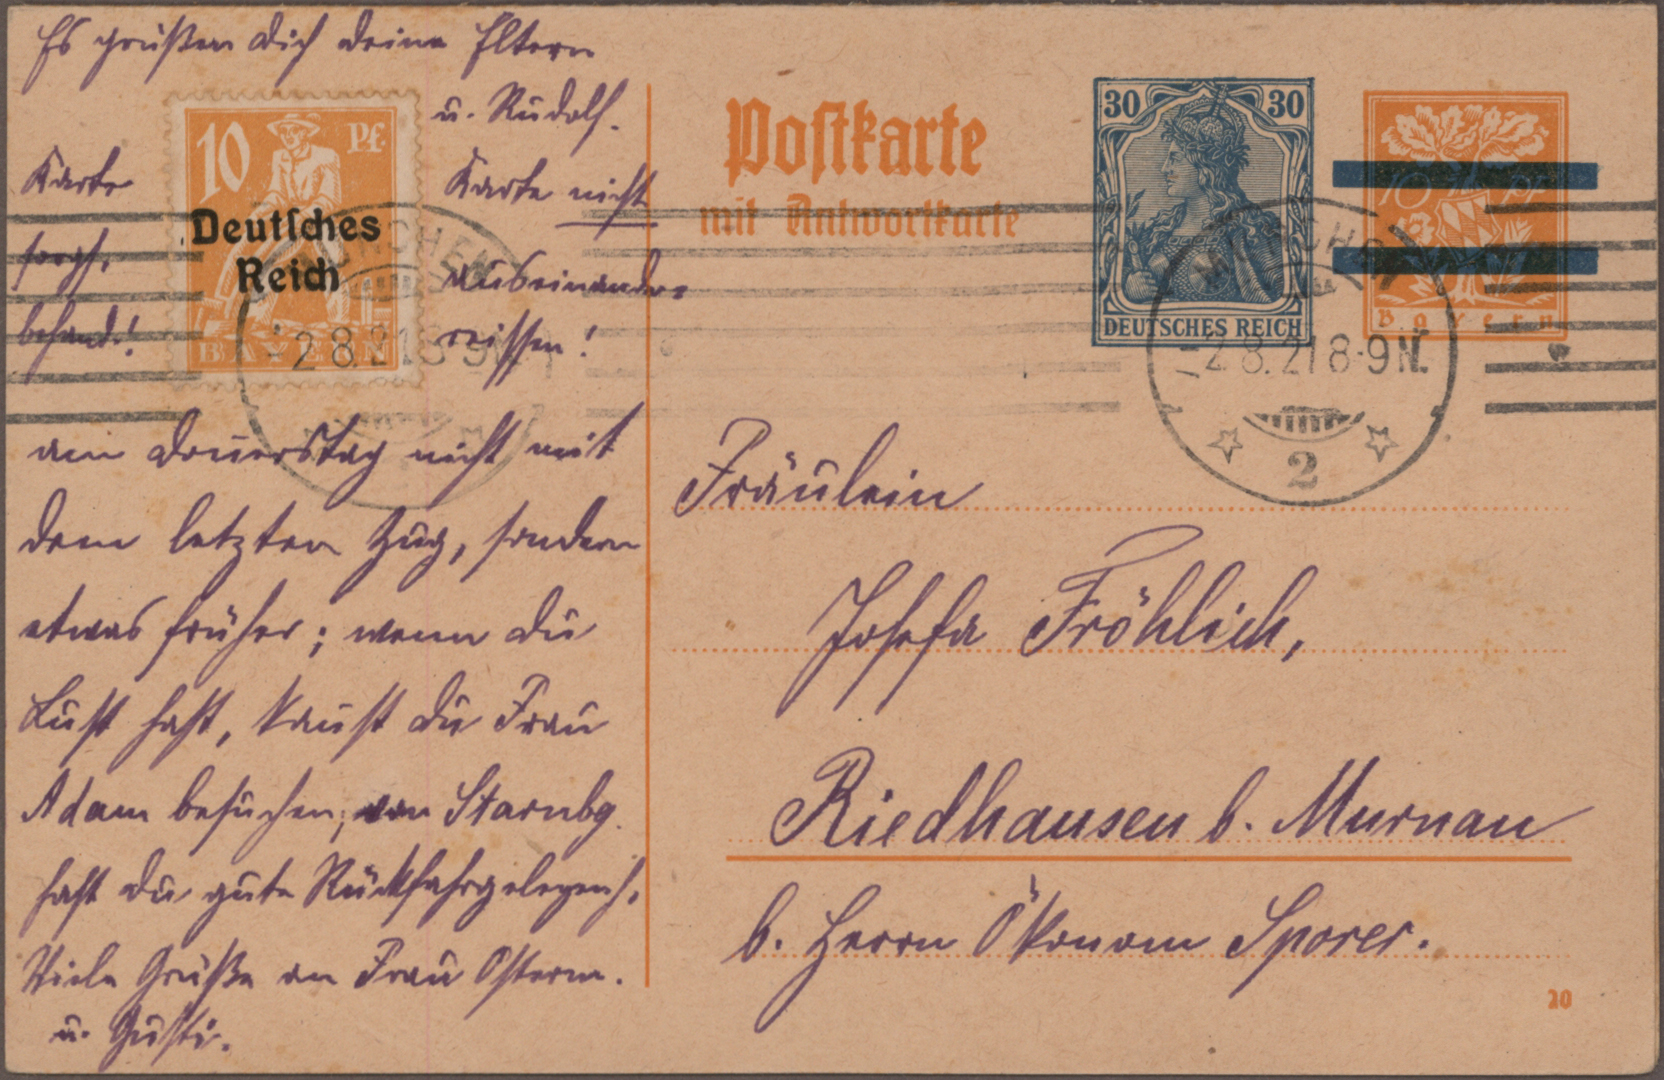 Es grüßen Dich deine Eltern
u. Rudolf.
Karte
sorgf.
behand.!
Karte nicht
auseinander-
reissen!
am Donnerstag nicht mit
dem letzten Zug, sondern
etwas früher; wenn du
Lust hast, kannst du Frau
Adam besuchen; von Starnbg.
hast du gute Rückfahrgelegenh.
Viele Grüße an Frau Osterm.
u. Gusti.
10 Pf.
Deutsches
Reich
BAYERN
MÜNCHEN
-2.8.21 8-9 N.
Postkarte
mit Antwortkarte
30 30
DEUTSCHES REICH
10 Pf
Bayern
MÜNCHEN
-2.8.21 8-9 N.
2
Fräulein
Josefa Fröhlich,
Riedhausen b. Murnau
b. Herrn Ökonom Sporer.
20